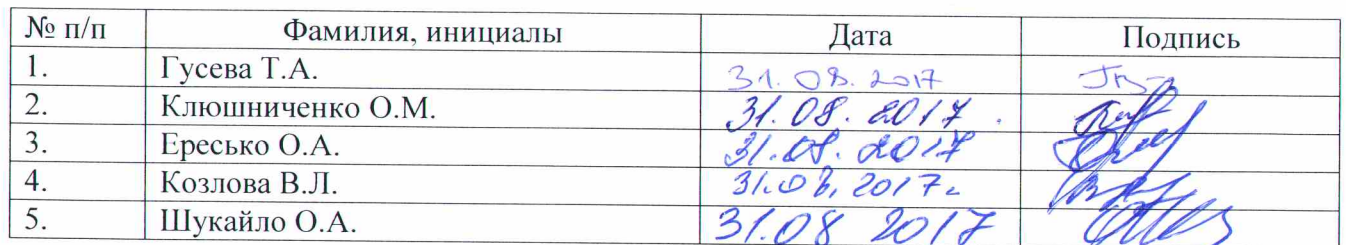 № п/п Фамилия, инициалы Дата Подпись
1. Гусева Т.А. 31.08.2017
2. Клюшниченко О.М. 31.08.2017.
3. Ересько О.А. 31.08.2017
4. Козлова В.Л. 31.08.2017г.
5. Шукайло О.А. 31.08 2017